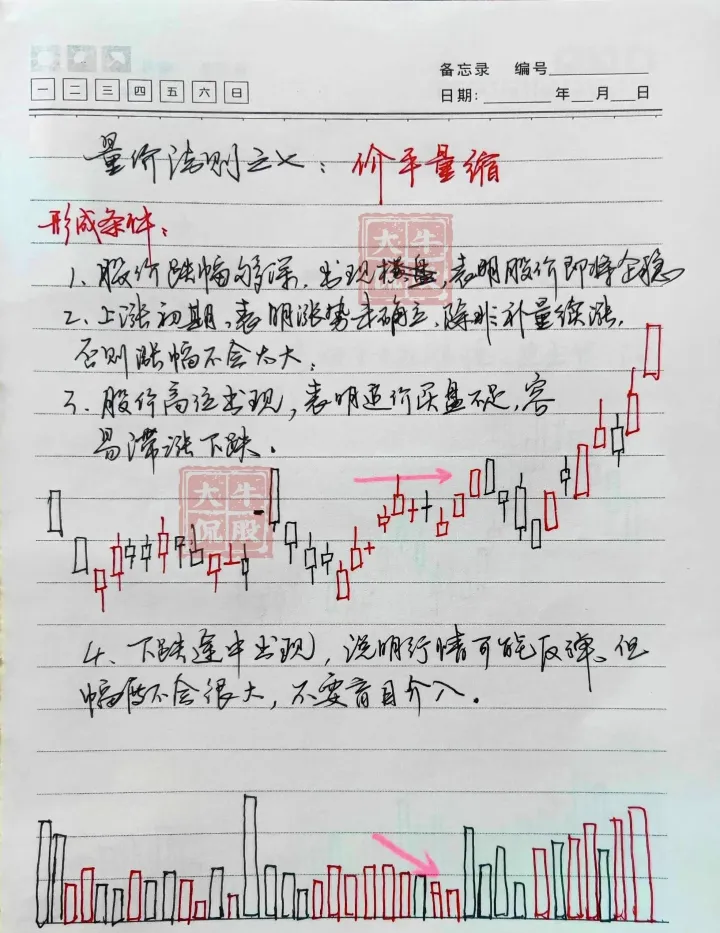 备忘录 编号
一 二 三 四 五 六 日
日期： 年 月 日
量价法则之七：价平量缩
形成条件：
1、股价跌幅够深，出现横盘，表明股价即将企稳
2、上涨初期，表明涨势未确立，除非补量续涨，
否则涨幅不会太大；
3、股价高位出现，表明追价买盘不足，容
易滞涨下跌．
大牛
侃股
大牛
侃股
4、下跌途中出现，说明行情可能反弹、但
幅度不会很大，不要盲目介入．